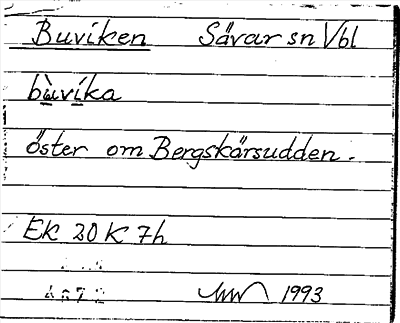 Buviken Sävar sn Vbl
bùvíka
öster om Bergskärsudden.
EK 20 K 7h
1993